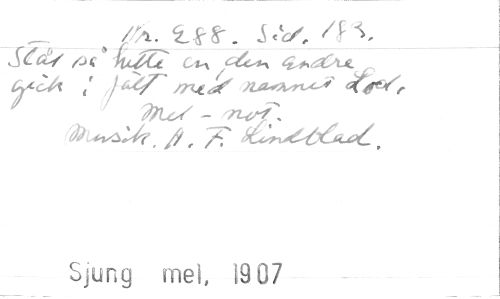 Nr. 288. Sid. 183.
Ståt så hette en, den andre
gick i fält med namnet Lod.
Mel - not.
Musik. A. F. Lindblad.
Sjung mel, 1907